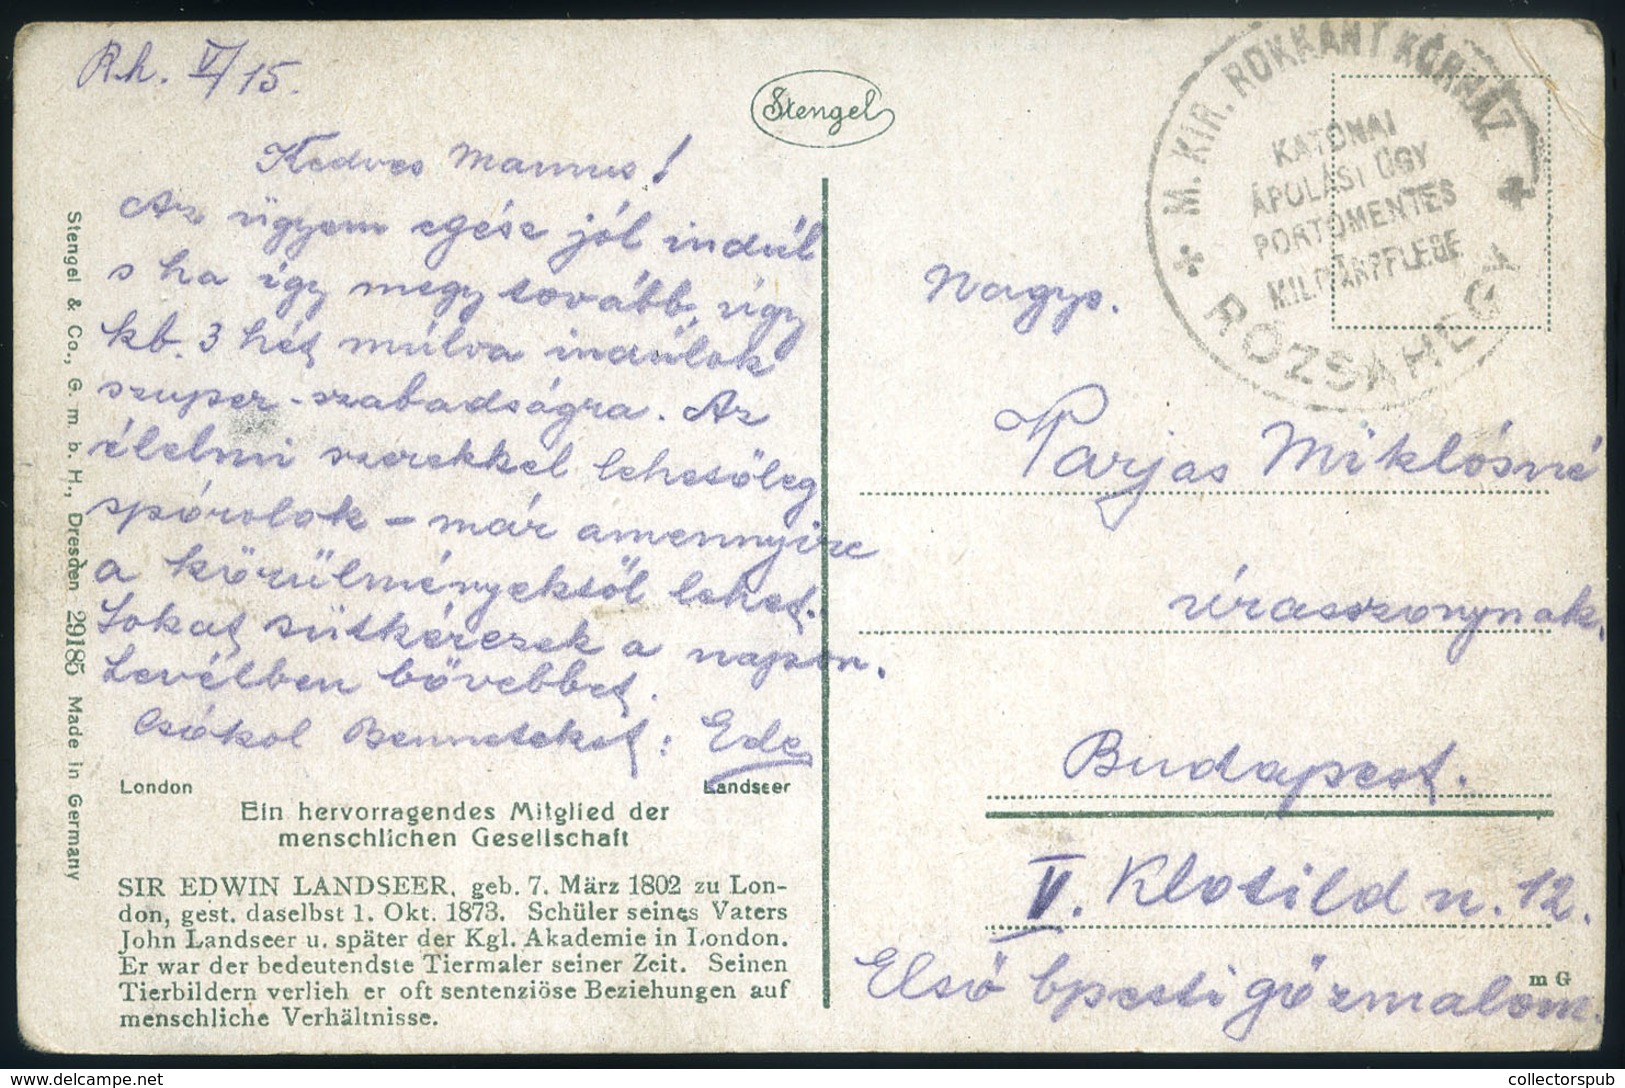 R.h. V/15.
Stengel
M. KIR. ROKKANT KÓRHÁZ
KATONAI
ÁPOLÁSI ÜGY
PORTÓMENTES
MILITÄRPFLEGE
RÓZSAHEGY
Kedves Mamus!
Az ügyem egész jól indúl
s ha így megy tovább, úgy
kb. 3 hét múlva indúlok
szuper-szabadságra. Az
élelmi szerekkel lehetőleg
spórolok – már amennyire
a körülményektől lehet.
Sokat sütkérezek a napon.
Levélben bővebbet.
Csókol Benneteket: Ede
Nagys.
Parjas Miklósné
úrasszonynak.
Budapest.
V. Klotild u. 12.
Első bpesti gőzmalom.
London Landseer
Ein hervorragendes Mitglied der
menschlichen Gesellschaft
SIR EDWIN LANDSEER, geb. 7. März 1802 zu Lon-
don, gest. daselbst 1. Okt. 1873. Schüler seines Vaters
John Landseer u. später der Kgl. Akademie in London.
Er war der bedeutendste Tiermaler seiner Zeit. Seinen
Tierbildern verlieh er oft sentenziöse Beziehungen auf
menschliche Verhältnisse.
m G
Stengel & Co., G. m. b. H., Dresden 29185 Made in Germany
collectorspub